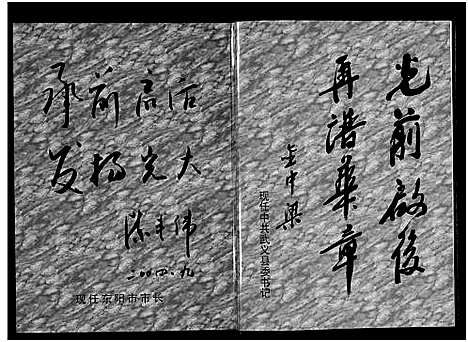 光前啟後
再谱華章
金中梁
现任中共武义县委书记
承前启后
发扬光大
陈丰伟
二00四.九
现任东阳市市长